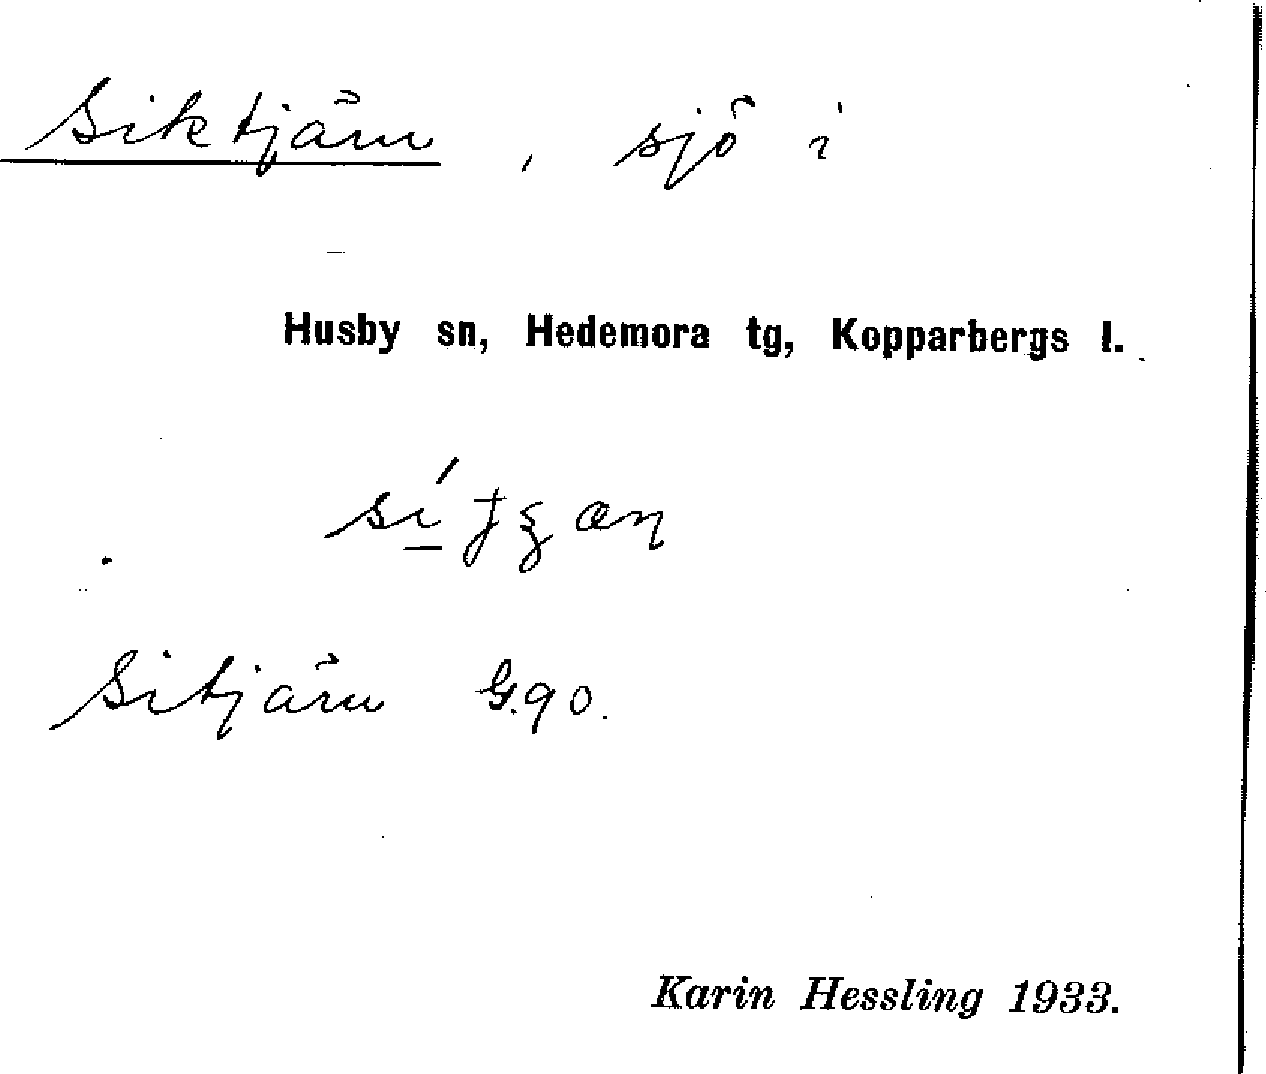 Siktjärn, sjö i
Husby sn, Hedemora tg, Kopparbergs l.
Sitjärn G.90.
Karin Hessling 1933.